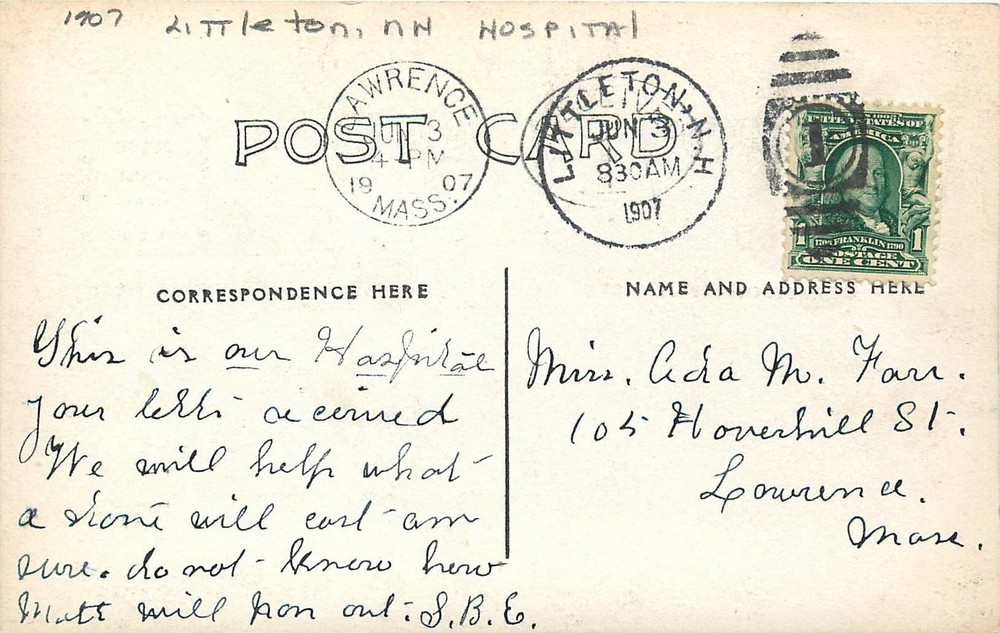 1907 Littleton, NH Hospital
LAWRENCE
JUN 3
4 PM
19 07
MASS.
LITTLETON, N.H
JUN 3
830AM
1907
POST CARD
UNITED STATES OF
AMERICA
1
1706 FRANKLIN 1790
1 1
POSTAGE
ONE CENT
CORRESPONDENCE HERE
NAME AND ADDRESS HERE
This is our Hospital
your letter received
We will help what
a stone will cost am
sure. do not know how
Matt will pan out. S.B.E.
Miss. Ada M. Farr.
105 Haverhill St.
Lawrence.
Mass.